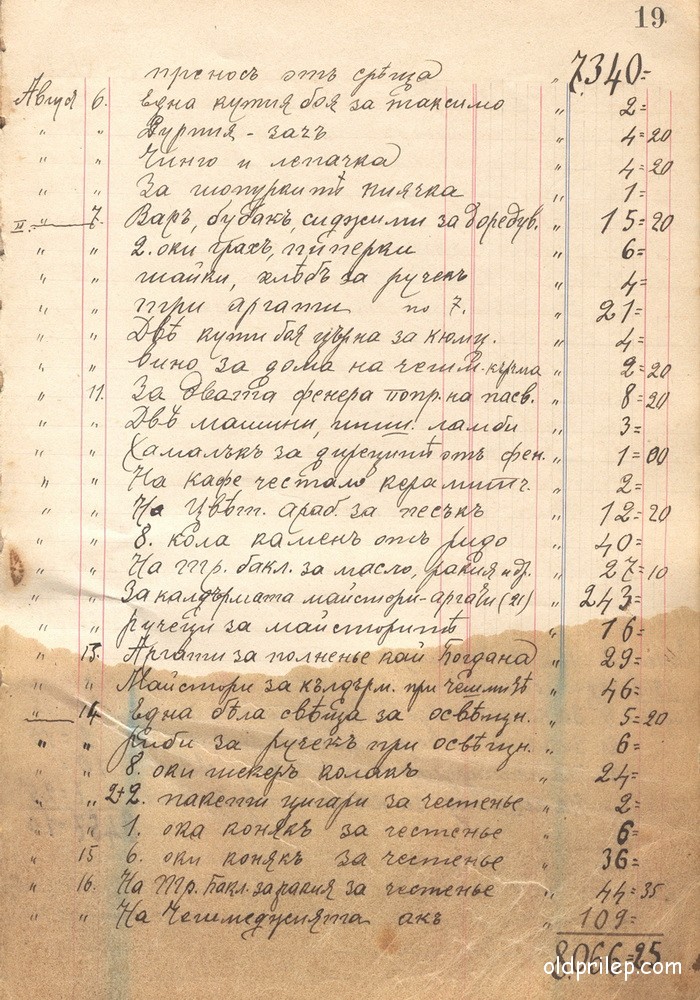 19
преносъ отъ срѣща " 7340=
Август 6. Една кутия боя за таксимо " 2=
" " Вуртия - зачъ " 4=20
" " Чинго и лепачка " 4=20
" " За шопуркитѣ пиячка " 1=
" 7. Варъ, бубакъ, сиджими за доредув. " 15=20
" " 2. оки грахъ, пиперки " 6=
" " шайки, хлѣбъ за рученъ " 4=
" " три аргати по 7. " 21=
" " Двѣ кути боя църна за кюми. " 4=
" " Вино за дома на чешм. кърма " 2=20
" 11. За двата фенера попр. на пасв. " 8=20
" " Двѣ машини, шиш. ламби " 3=
" " Хамалъкъ за дирецитѣ отъ фен. " 1=00
" " На кафе честало керамитч. " 2=
" " На Цвѣт. араб. за песъкъ " 12=20
" " 8. кола каменъ отъ ридо " 40=
" " На Тр. бакл. за масло, ракия и др. " 27=10
" " За калдърмата майстори-аргати (21) " 243=
" " ручеци за майсторитѣ " 16=
" 13. Аргати за полненье кай Богдана " 29=
" " Майстори за кълдърм. при чешмитѣ " 46=
" 14. Една бѣла свѣща за освѣщн. " 5=20
" " риби за рученъ при освѣщн. " 6=
" " 8. оки шекеръ колакъ " 24=
" " 2+2. пакети цигари за честенье " 2=
" " 1. ока конякъ за честенье " 6=
" 15 6. оки конякъ за честенье " 36=
" 16. На Тр. Бакл. за ракия за честенье " 44=35
" " На Чешмеджията акъ " 109=
8066=25
oldprilep.com